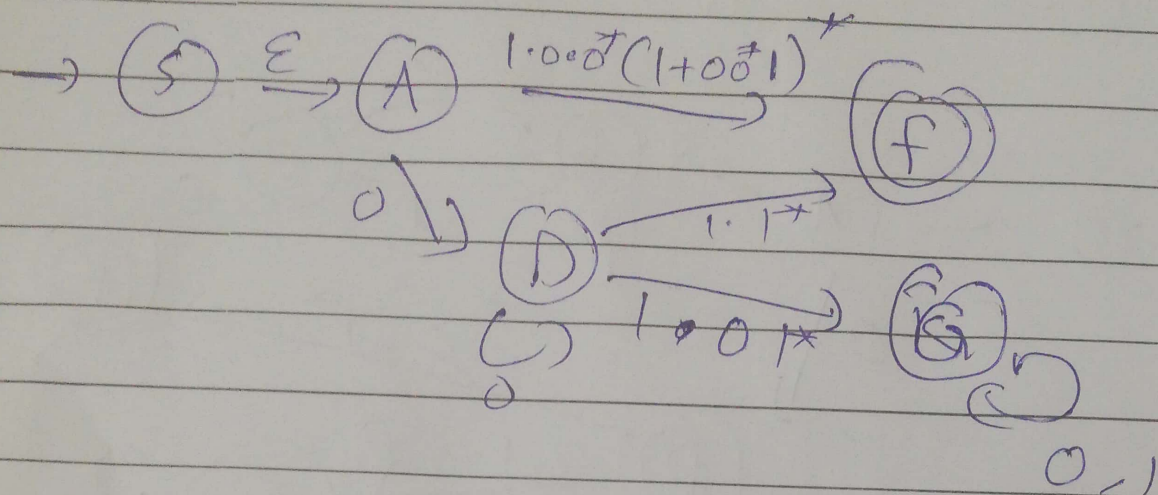 S ε A 1·0·0*(1+00*1)* f
0 D 1·1*
1·01* G
0
0,1